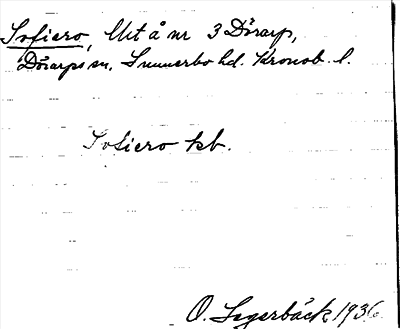 Sofiero, Utå nr 3 Dörarp,
Dörarps sn, Sunnerbo hd. Kronob. l.
Sofiero kb.
O. Segerbäck 1936